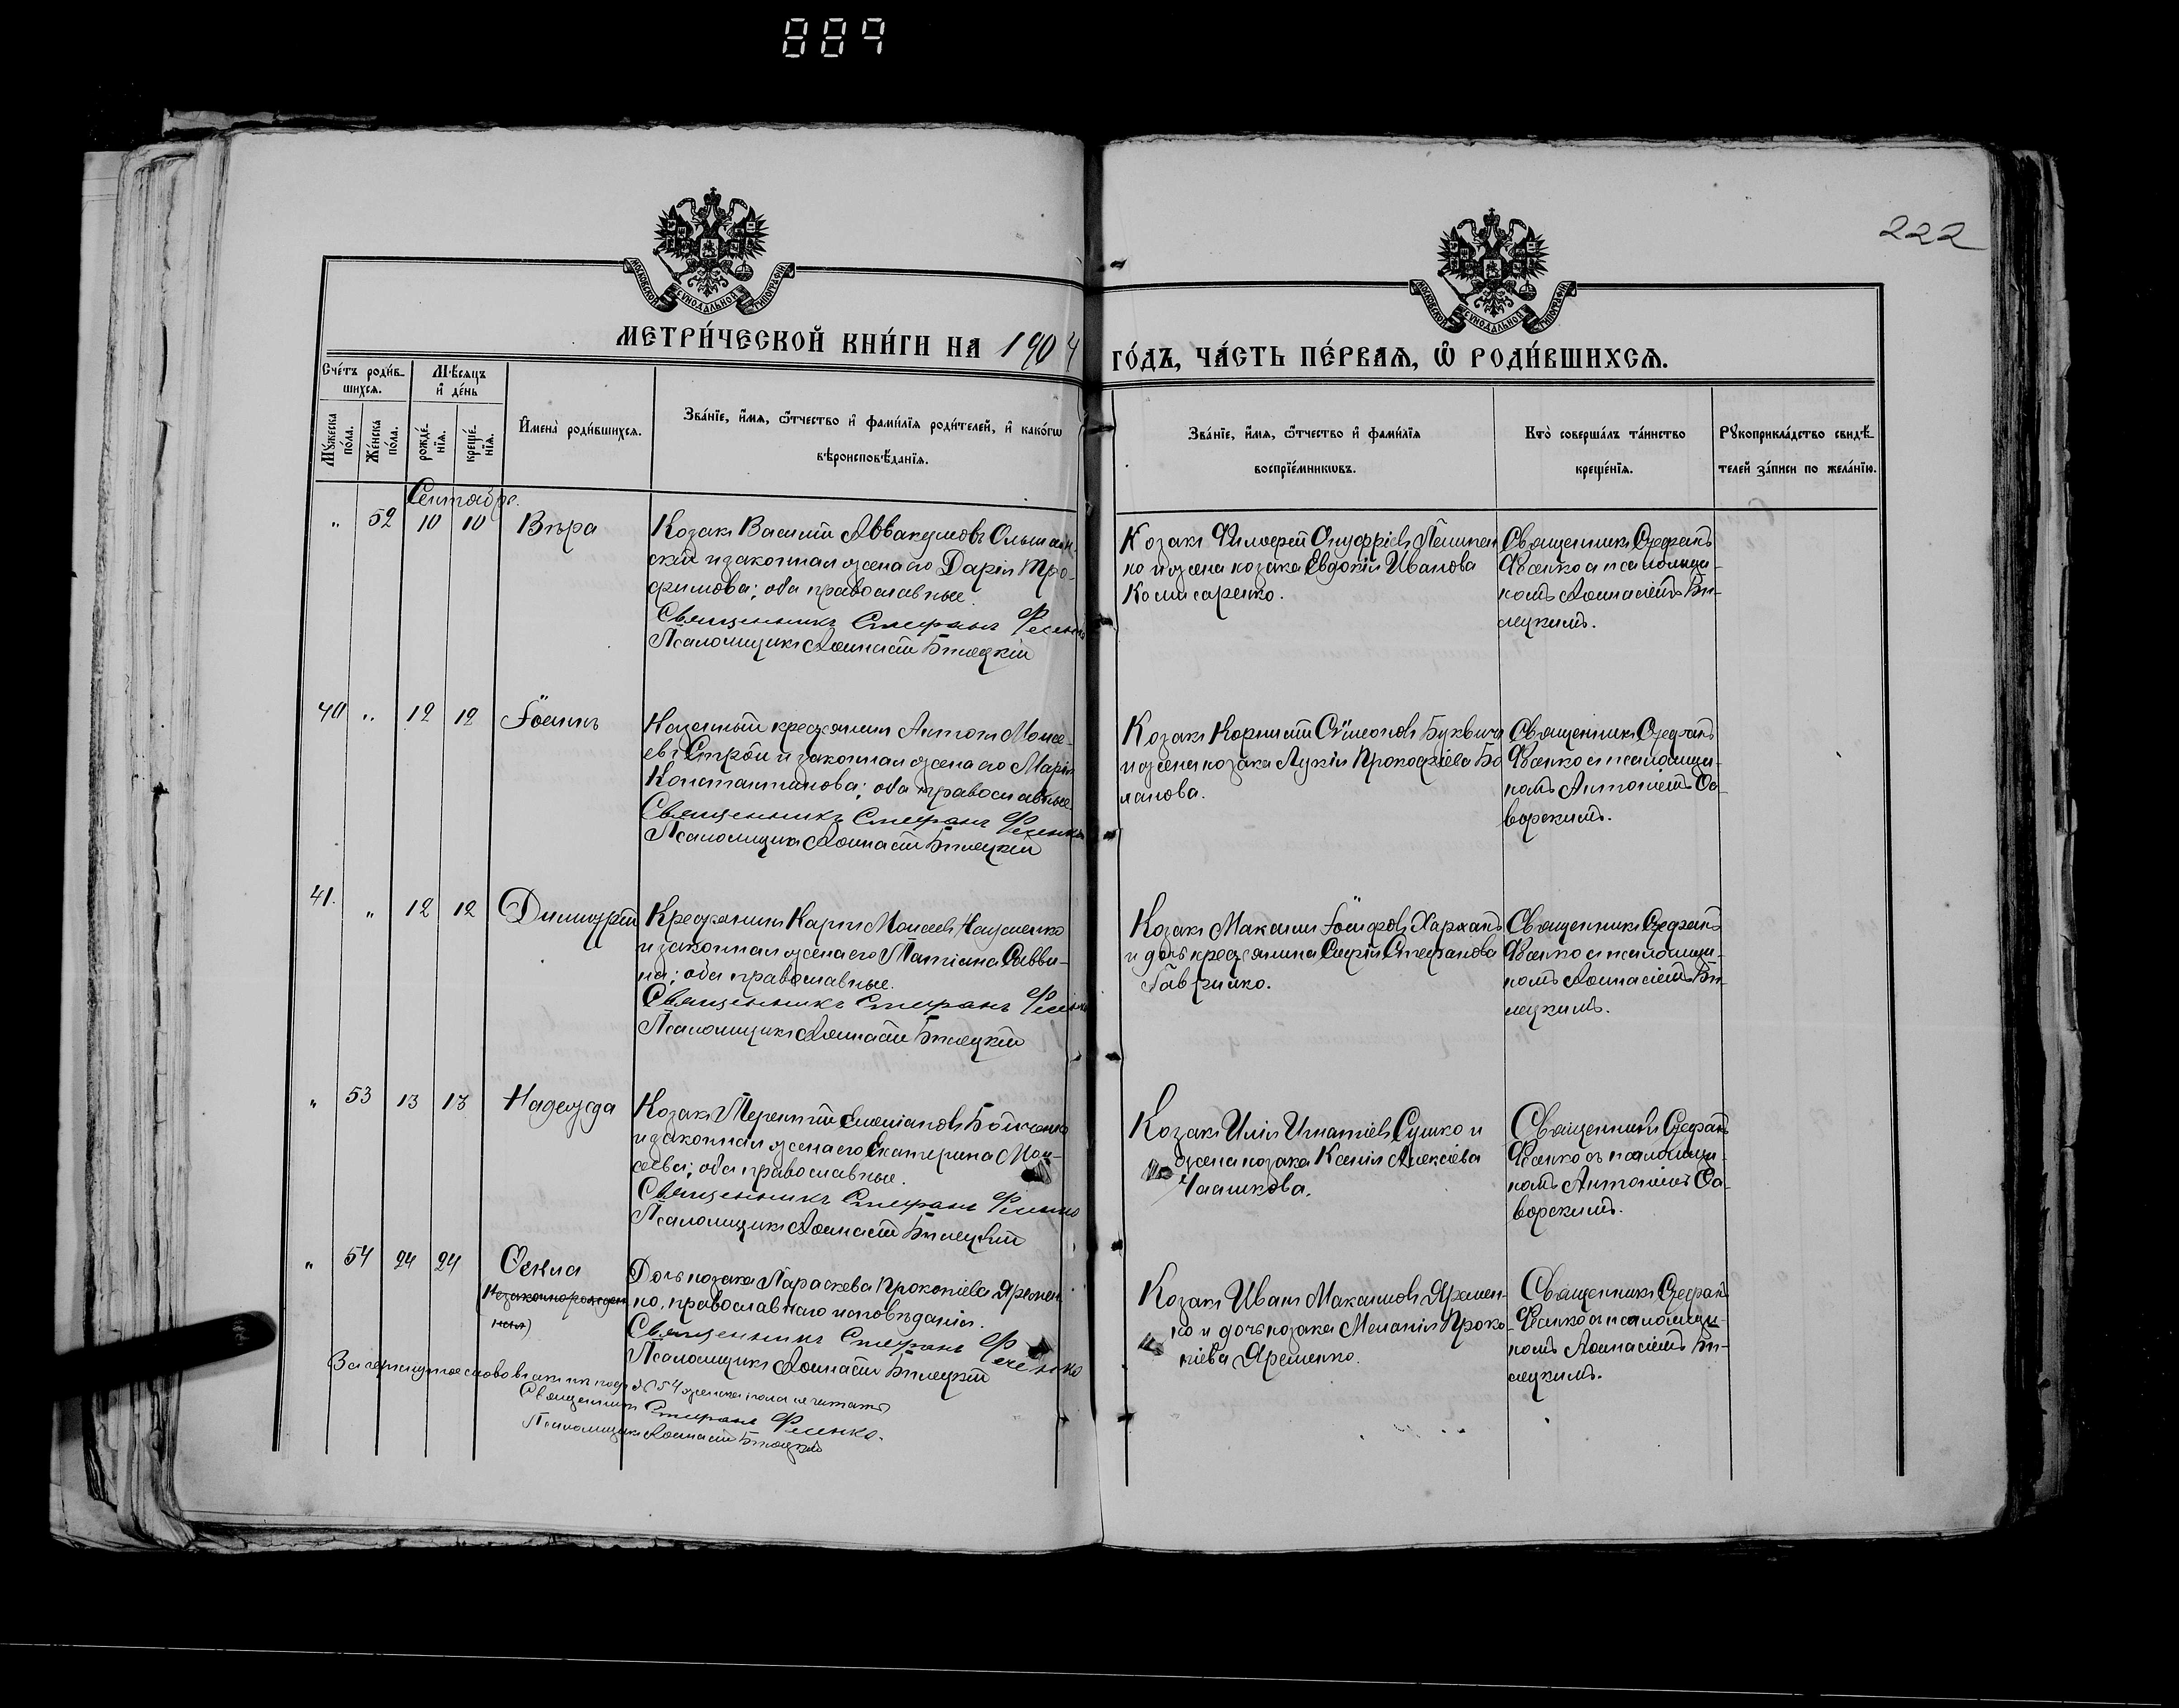 889
222
МОСКОВСКОЙ СѴНОДАЛЬНОЙ ТИПОГРАФІИ
МОСКОВСКОЙ СѴНОДАЛЬНОЙ ТИПОГРАФІИ
МЕТРИ́ЧЕСКОЙ КНИ́ГИ НА 1904 ГО́ДЪ, ЧА́СТЬ ПЕ́РВАѦ, Ѿ РОДИ́ВШИХСѦ.
Сче́тъ роди́в-
шихсѧ.
Мѣ́сѧцъ
и҆ де́нь
Мꙋ́жеска
по́ла.
Же́нска
по́ла.
рожде́-
нїѧ.
креще́-
нїѧ.
И҆мена̀ роди́вшихсѧ.
Зва́нїе, и҆́мѧ, ѻ҆́тчество и҆ фами́лїѧ роди́телей, и҆ како́гѡ
вѣроисповѣ́данїѧ.
Зва́нїе, и҆́мѧ, ѻ҆́тчество и҆ фами́лїѧ
воспрїе́мникѡвъ.
Кто̀ соверша́лъ та́инство
креще́нїѧ.
Рꙋкоприкла́дство свидѣ́-
телей за́писи по жела́нїю.
Сентябрь.
" 52 10 10 Вѣра
Козакъ Василій Аввакумовъ Ольшан-
скій и законная жена его Дарія Тро-
фимова; оба православные.
Священникъ Стефанъ Фесенко
Псаломщикъ Аѳанасій Бѣлецкій
Козакъ Филоѳей Онуфріевъ
но и жена козака Евдокія Иванова
Комисаренко.
Священникъ Стефанъ
Фесенко съ псаломщи-
комъ Аѳанасіемъ Бѣ-
лецкимъ.
40 " 12 12 Іоаннъ
Казенный крестьянинъ Антонъ Моисе-
евъ Строй и законная жена его Марія
Константинова; оба православные.
Священникъ Стефанъ Фесенко
Псаломщикъ Аѳанасій Бѣлецкій
Козакъ Корнилій Сѵмеоновъ
и жена козака Лукія Прокофіева
ланова.
Священникъ Стефанъ
Фесенко съ псаломщи-
комъ Антоніемъ Са-
ворскимъ.
41. " 12 12 Димитрій
Крестьянинъ Карпъ Моисеевъ Науменко
и законная жена его Татіана Савви-
на; оба православные.
Священникъ Стефанъ Фесенко
Псаломщикъ Аѳанасій Бѣлецкій
Козакъ Максимъ Іосифовъ
и дочь крестьянина Стефанова
Гаврилко.
Священникъ Стефанъ
Фесенко съ псаломщи-
комъ Аѳанасіемъ Бѣ-
лецкимъ.
" 53 13 13 Надежда
Козакъ Терентій Бойченко
и законная жена его Екатерина Мои-
сеева; оба православные.
Священникъ Стефанъ Фесенко
Псаломщикъ Аѳанасій Бѣлецкій
Козакъ Илія Игнатіевъ Сушко и
жена козака Ксенія Алексіева
Священникъ Стефанъ
Фесенко съ псаломщи-
комъ Антоніемъ Са-
ворскимъ.
" 54 24 24 Ѳекла
(Незаконнорожден-
ная)
Дочь козака Параскева Прокопіева Яремен-
ко, православнаго исповѣданія.
Священникъ Стефанъ Фесенко
Псаломщикъ Аѳанасій Бѣлецкій
Козакъ Иванъ Максимовъ Яремен-
ко и дочь козака Меланія Проко-
піева Яременко.
Священникъ Стефанъ
Фесенко съ псаломщи-
комъ Аѳанасіемъ Бѣ-
лецкимъ.
Зачеркнутое слово въ подъ № 54 женска пола не читать
Священникъ Стефанъ Фесенко.
Псаломщикъ Аѳанасій Бѣлецкій